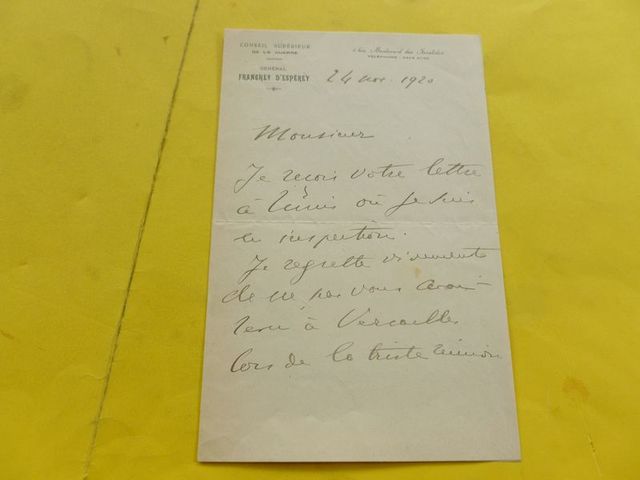 CONSEIL SUPÉRIEUR
DE LA GUERRE
GÉNÉRAL
FRANCHET D'ESPÉREY
Boulevard des Invalides
TÉLÉPHONE
24 nov. 1920
Monsieur
Je reçois votre lettre
à Tunis où je suis
en inspection.
Je regrette vivement
de ne pas vous avoir
vu à Versailles
lors de la triste réunion